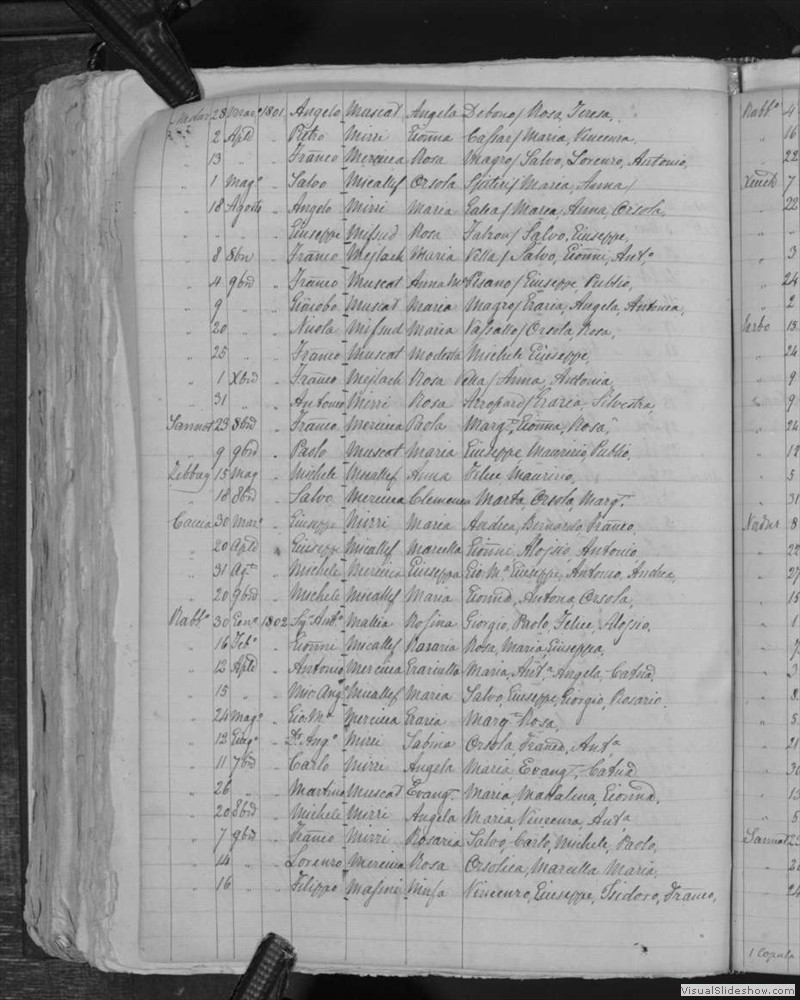 Nadur 28 Mar.o 1801 Angelo Muscat Angela Debono/ Rosa, Teresa,
" 2 Aple " Pietro Mirri Gionna Cassar/ Maria, Vincenza,
" 13 " " Franco Mercieca Rosa Magro/ Salvo, Lorenzo, Antonio,
" 1 Mag.o " Salvo Micallef Orsola Spiteri/ Maria, Anna/
" 18 Agosto " Angelo Mirri Maria Galea/ Maria, Anna, Orsola,
" " " " Giuseppe Mifsud Rosa Salvo, Giuseppe,
" 8 8bre " Franco Mejlach Maria Vella/ Salvo, Gionni, Ant.o
" 4 9bre " Franco Muscat Anna M.a Pisano/ Giuseppe, Publio,
" 9 " " Giacobo Muscat Maria Magro/ Grazia, Angela, Antonia,
" 20 " " Nicola Mifsud Maria Vassallo/ Orsola, Rosa,
" 25 " " Franco Muscat Modesta Michele Giuseppe,
" 1 Xbre " Franco Mejlach Rosa Vella/ Anna, Antonia,
" 31 " " Antonio Mirri Rosa Grazia, Silvestra,
Sannat 23 8bre " Franco Mercieca Paola Marg.a, Gionna, Rosa,
" 9 9bre " Paolo Muscat Maria Giuseppe, Maurizio, Publio,
Zebbug 15 Mag " Michele Micallef Anna Felice, Maurizio,
" 18 8bre " Salvo Mercieca Clemenza Marta, Orsola, Marg.a
Caccia 30 Mar.o " Giuseppe Mirri Maria Andrea, Bernardo, Franco,
" 20 Aple " Giuseppe Micallef Marcella Gionni, Aloisio, Antonio
" 31 Ag.o " Michele Mercieca Giuseppa Gio M.a Giuseppe, Antonio, Andrea,
" 20 9bre " Michele Micallef Maria Antona, Orsola,
Rabb.o 30 Gen.o 1802 Sig. Ant.o Mallia Rosina Giorgio, Paolo, Felice, Aloisio,
" 16 Feb.o " Gionni Micallef Rosaria Rosa, Maria, Giuseppa,
" 12 Aple " Antonio Mercieca Graziulla Maria, Ant.a Angela,
" 15 " " Mic. Ang.o Micallef Maria Salvo, Giuseppe, Giorgio, Rosario
" 24 Mag.o " Gio. M.a Mercieca Grazia Marg.a Rosa,
" 12 Giug.o " Ang.o Mirri Sabina Orsola, Ant.a
" 11 7bre " Carlo Mirri Angela Maria, Evang.a
" 26 " " Martino Muscat Evang.a Maria, Mattalina,
" 20 8bre " Michele Mirri Angela Maria, Vincenza, Ant.a
" 7 9bre " Franco Mirri Rosaria Salvo, Carlo, Michele, Paolo,
" 14 " " Lorenzo Mercieca Rosa Orsolica, Marcella Maria,
" 16 " " Filippo Masini Ninfa Vincenzo, Giuseppe, Isidoro, Franco,
Rabb.o 4
" 16
" 22
Xeuch 7
" 22
" 3
" 24
" 2
Garbo 13
" 24
" 9
" 9
" 24
" 12
" 5
" 31
Nadur 8
" 22
" 27
" 15
" 1
" 7
" 3
" 8
" 5
" 21
" 30
" 13
" 5
Sannat 23
" 24
1 Copula
VisualSlideshow.com